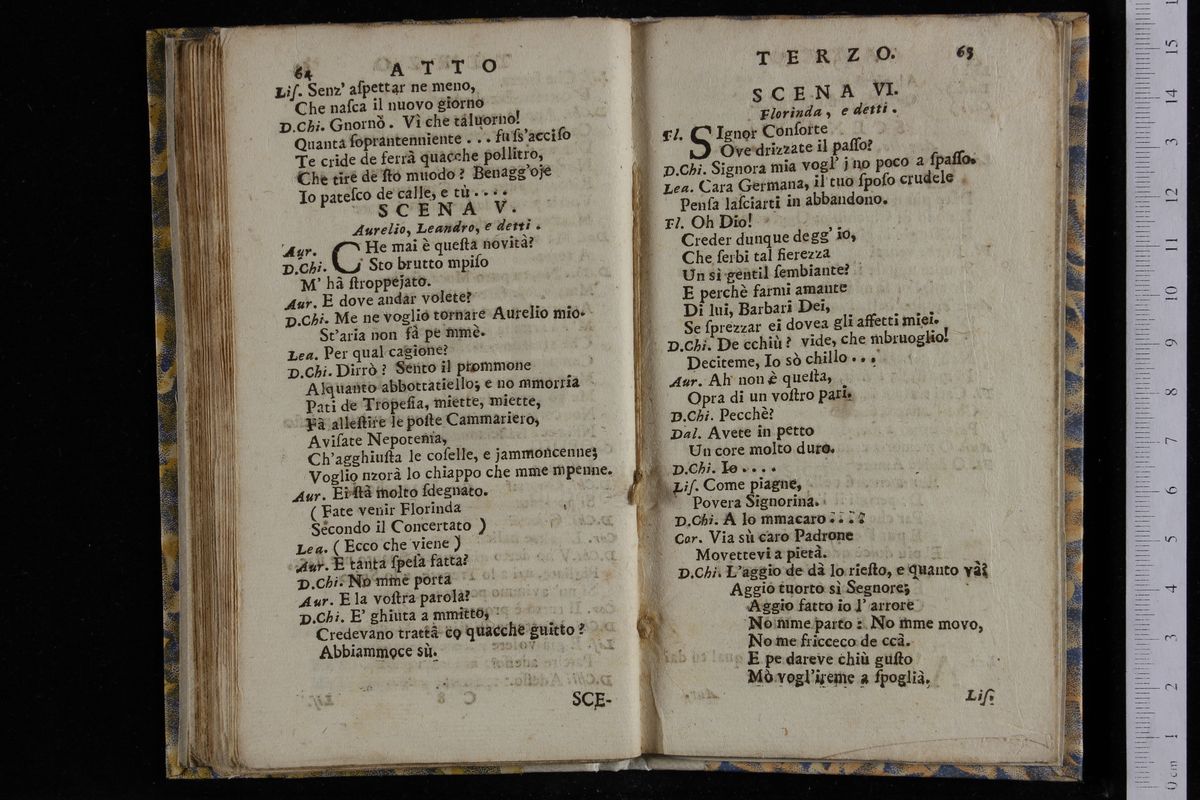 64 ATTO
Liſ. Senz' aſpettar ne meno,
Che naſca il nuovo giorno
D.Chi. Gnornò. Vì che taluorno!
Quanta ſoprantenniente ... fuſs'acciſo
Te cride de ferrà quacche pollitro,
Che tire de ſto muodo? Benagg'oje
Io pateſco de calle, e tù ....
SCENA V.
Aurelio, Leandro, e detti.
Aur. CHe mai è queſta novità?
D.Chi. Sto brutto mpiſo
M' hà ſtroppejato.
Aur. E dove andar volete?
D.Chi. Me ne voglio tornare Aurelio mio.
St'aria non fà pe mmè.
Lea. Per qual cagione?
D.Chi. Dirrò? Sento il prommone
Alquanto abbottatiello; e no mmorria
Pati de Tropeſia, miette, miette,
Fà alleſtire le poſte Cammariero,
Aviſate Nepotema,
Ch'agghiuſta le coſelle, e jammoncenne;
Voglio nzorà lo chiappo che mme mpenne.
Aur. Ei ſtà molto ſdegnato.
(Fate venir Florinda
Secondo il Concertato)
Lea. (Ecco che viene)
Aur. E tanta ſpeſa fatta?
D.Chi. No mme porta
Aur. E la voſtra parola?
D.Chi. E' ghiuta a mmitto,
Credevano trattà co quacche guitto?
Abbiammoce sù.
SCE-
TERZO. 65
SCENA VI.
Florinda, e detti.
Fl. SIgnor Conſorte
Ove drizzate il paſſo?
D.Chi. Signora mia vogl' j no poco a ſpaſſo.
Lea. Cara Germana, il tuo ſpoſo crudele
Penſa laſciarti in abbandono.
Fl. Oh Dio!
Creder dunque degg' io,
Che ſerbi tal fierezza
Un sì gentil ſembiante?
E perchè farmi amante
Di lui, Barbari Dei,
Se ſprezzar ei dovea gli affetti miei.
D.Chi. De cchiù? vide, che mbruoglio!
Deciteme, Io sò chillo ...
Aur. Ah non è queſta,
Opra di un voſtro pari.
D.Chi. Pecchè?
Dal. Avete in petto
Un core molto duro.
D.Chi. Io ....
Liſ. Come piagne,
Povera Signorina.
D.Chi. A lo mmacaro ....
Cor. Via sù caro Padrone
Movettevi a pietà.
D.Chi. L'aggio de dà lo rieſto, e quanto và?
Aggio tuorto sì Segnore;
Aggio fatto io l' arrore
No mme parto: No mme movo,
No me fricceco de ccà.
E pe dareve chiù guſto
Mò vogl'ireme a ſpoglià.
Liſ.